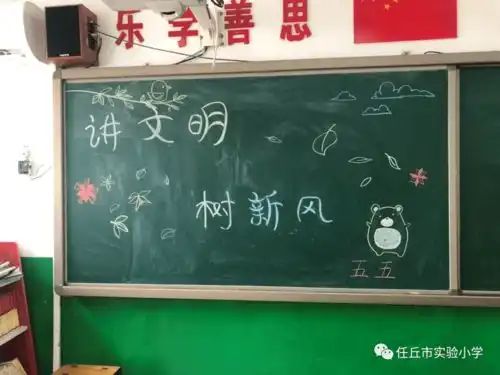 乐学善思
讲文明
树新风
五五
任丘市实验小学